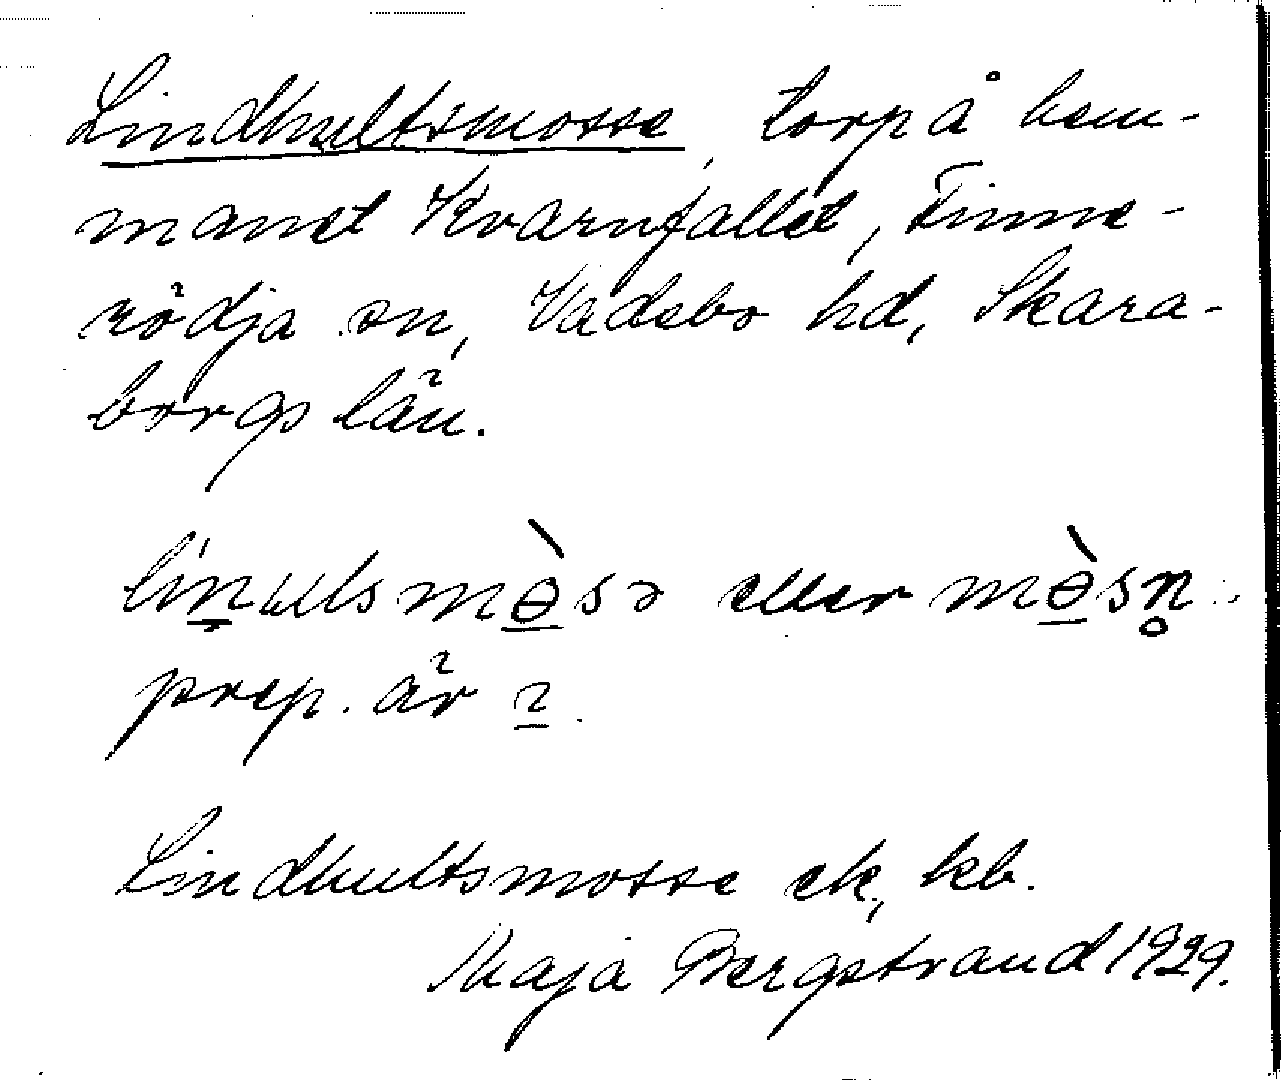 Lindhultsmosse, torp å hem-
manet Kvarnfallet, Finne-
rödja sn, Vadsbo hd, Skara-
borgs län.
eller
prep. är
Lindhultsmosse ek, kb.
Maja Bergstrand 1929.